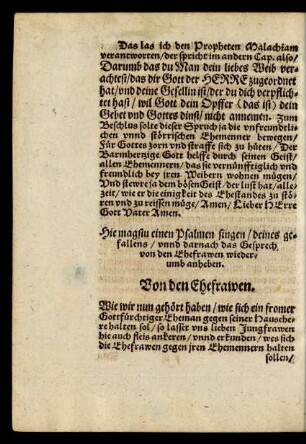 Das las ich den Propheten Malachiam
verantworten/der spricht im andern Cap. also/
Darumb das du Man dein liebes Weib ver-
achtest/das dir Gott der HERRE zugeordnet
hat/vnd deine Gesellin ist/der du dich verpflich-
tet hast/ wil Gott dein Opffer (das ist) dein
Gebet vnd Gottes dinst/ nicht annemen. Zum
Beschlus solte dieser Spruch ja die vnfreundtli-
chen vnnd störrischen Ehemenner bewegen/
Für Gottes zorn vnd straffe sich zu hüten/ Der
Barmhertzige Gott helffe durch seinen Geist/
allen Ehemennern/das sie vernünfftiglich vnd
freundlich bey jren Weibern wohnen mügen/
Vnd stewre ja dem bösen Geist/ der lust hat/alle-
zeit/ wie er die einigkeit des Ehestandes zu stö-
ren vnd zu reissen müge/ Amen/ Lieber HErre
Gott Vater Amen.
Hie magstu einen Psalmen singen/ deines ge-
fallens / vnnd darnach das Gesprech,
von den Ehefrawen wieder/
umb anheben.
Von den Ehefrawen.
Wie wir nun gehört haben/ wie sich ein fromer
Gottfürchtiger Eheman gegen seiner Hausehe-
re halten sol/ so lasset vns lieben Jungfrawen
hie auch fleis ankeren/ vnnd erkunden/ wes sich
die Ehefrawen gegen jren Ehemennern halten
sollen/